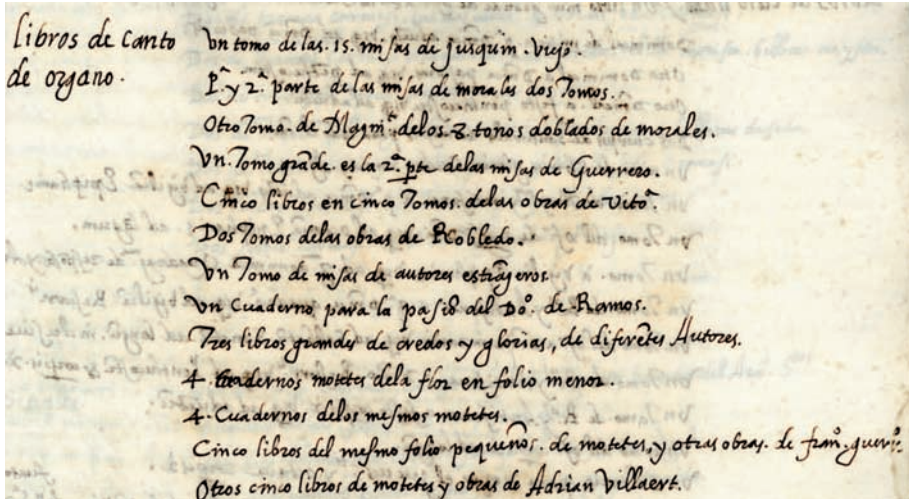 libros de Canto
de organo.
Vn tomo de las .15. misas de Jusquim . Viejo.
Pª. y 2ª. parte de las misas de morales dos Tomos.
Otro Tomo. de Magniᵗ. delos 8 tonos doblados de morales.
Vn. Tomo grãde. es la 2ª. pte delas misas de Guerrero.
Cinco libros en cinco Tomos. delas obras de Vitoª.
Dos Tomos delas obras de Robledo.
Vn Tomo de misas de autores estrãjeros.
Vn Cuaderno para la pasiõ del Doº. de Ramos.
Tres libros grandes de credos y glorias, de diferẽtes Autores.
4 Cuadernos motetes dela flor en folio menor.
4. Cuadernos delos mesmos motetes.
Cinco libros del mesmo folio pequeños. de motetes, y otras obras. de franº. guerrº.
Otros cinco libros de motetes y obras de Adrian Villaert.